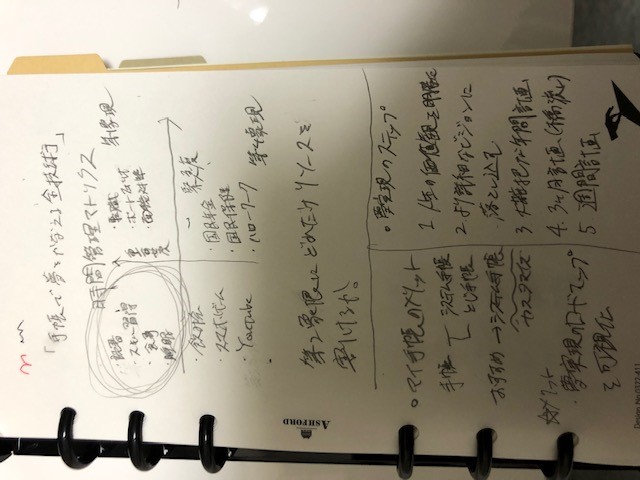 「手帳で夢をかなえる全技術」
時間管理マトリクス
・読書
・スキル習得
・食事
・睡眠
重要度
・転職
・ポートフォリオ
・面接対策
第1象現
緊急度
・飲み会
・スマホゲーム
・Youtube
・国民年金
・国民保険
・ハローワーク
第4象現
第2象限にどれだけリソースを
割けるか!
○マイ手帳のメリット
手帳
システム手帳
とじ手帳
おすすめ→システム手帳
カスタマイズ
☆メリット
・夢実現のロードマップ
を可視化
○夢実現のステップ
1 人生の価値観を明確に
2 より詳細なビジョンに
落とし込む
3 大雑把な年間計画
4. 3ヶ月計画(橋渡し)
5 週間計画
ASHFORD
Design No.0322-411